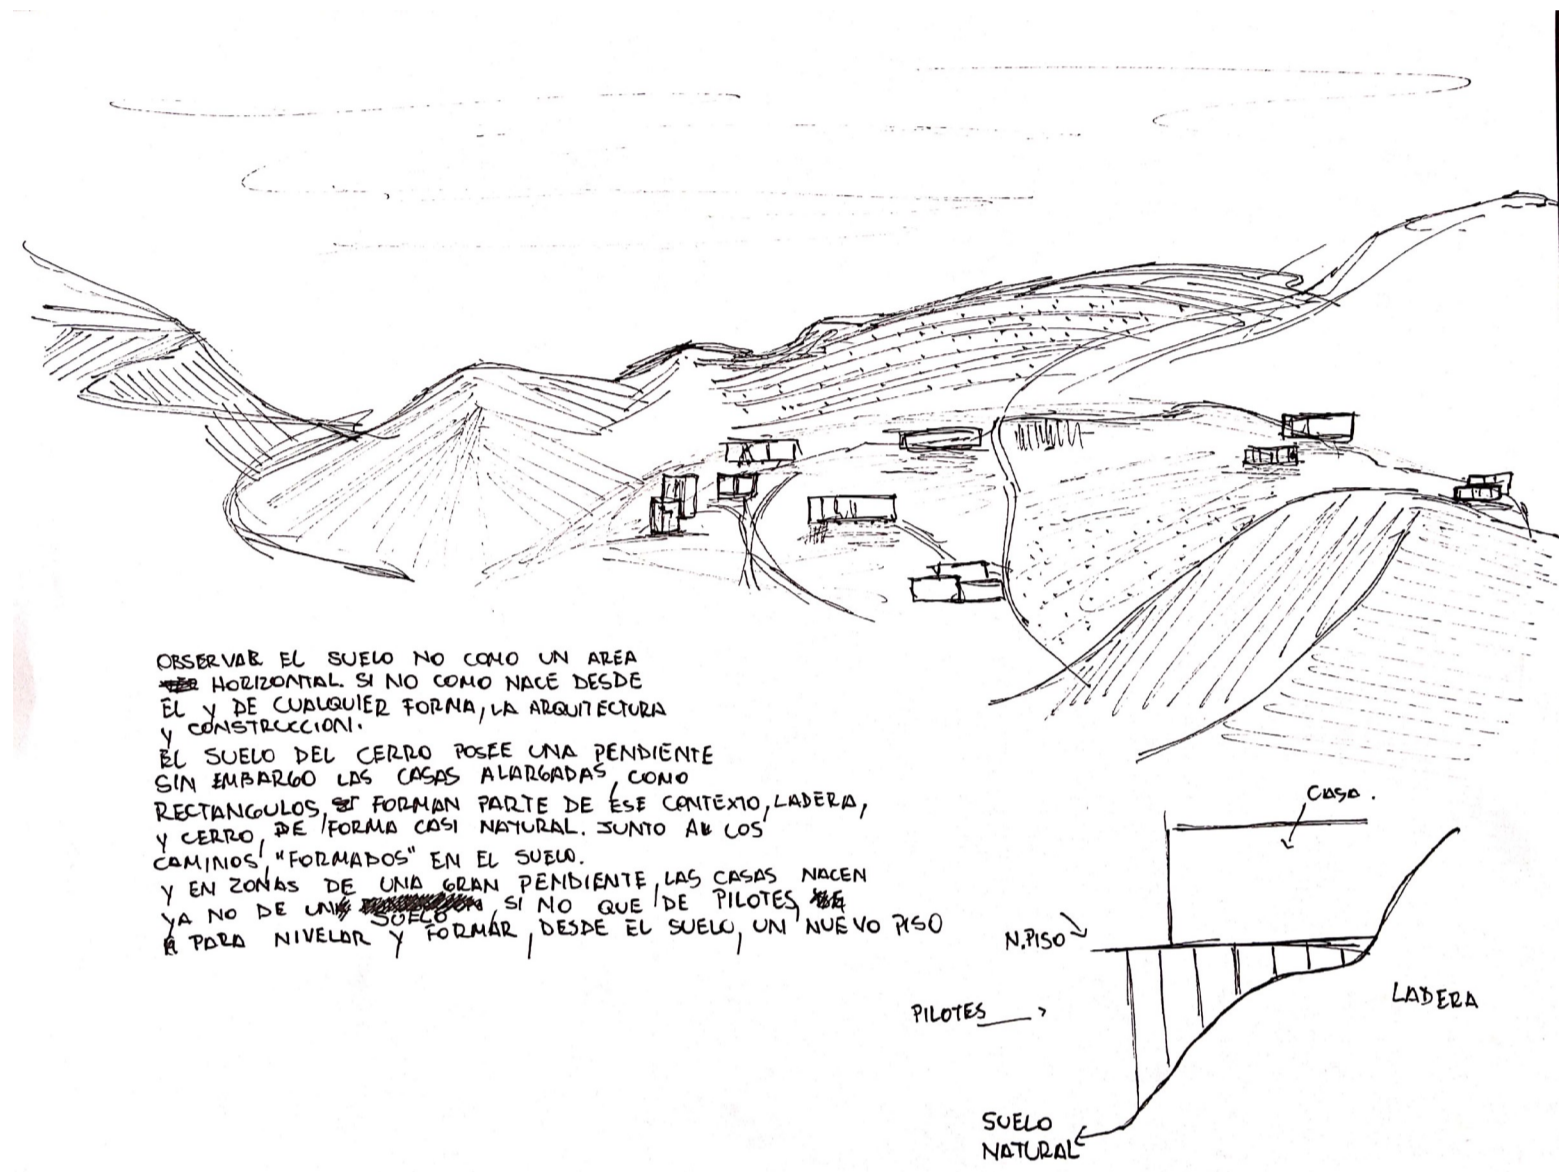 OBSERVAR EL SUELO NO COMO UN AREA
HORIZONTAL. SI NO COMO NACE DESDE
ÉL Y DE CUALQUIER FORMA, LA ARQUITECTURA
Y CONSTRUCCION.
EL SUELO DEL CERRO POSEE UNA PENDIENTE
SIN EMBARGO LAS CASAS ALARGADAS, COMO
RECTANGULOS, FORMAN PARTE DE ESE CONTEXTO, LADERA,
Y CERRO, DE FORMA CASI NATURAL. JUNTO A LOS
CAMINOS, "FORMADOS" EN EL SUELO.
Y EN ZONAS DE UNA GRAN PENDIENTE, LAS CASAS NACEN
YA NO DE UN SUELO, SI NO QUE DE PILOTES,
PARA NIVELAR Y FORMAR, DESDE EL SUELO, UN NUEVO PISO
CASA.
N. PISO
PILOTES
LADERA
SUELO
NATURAL